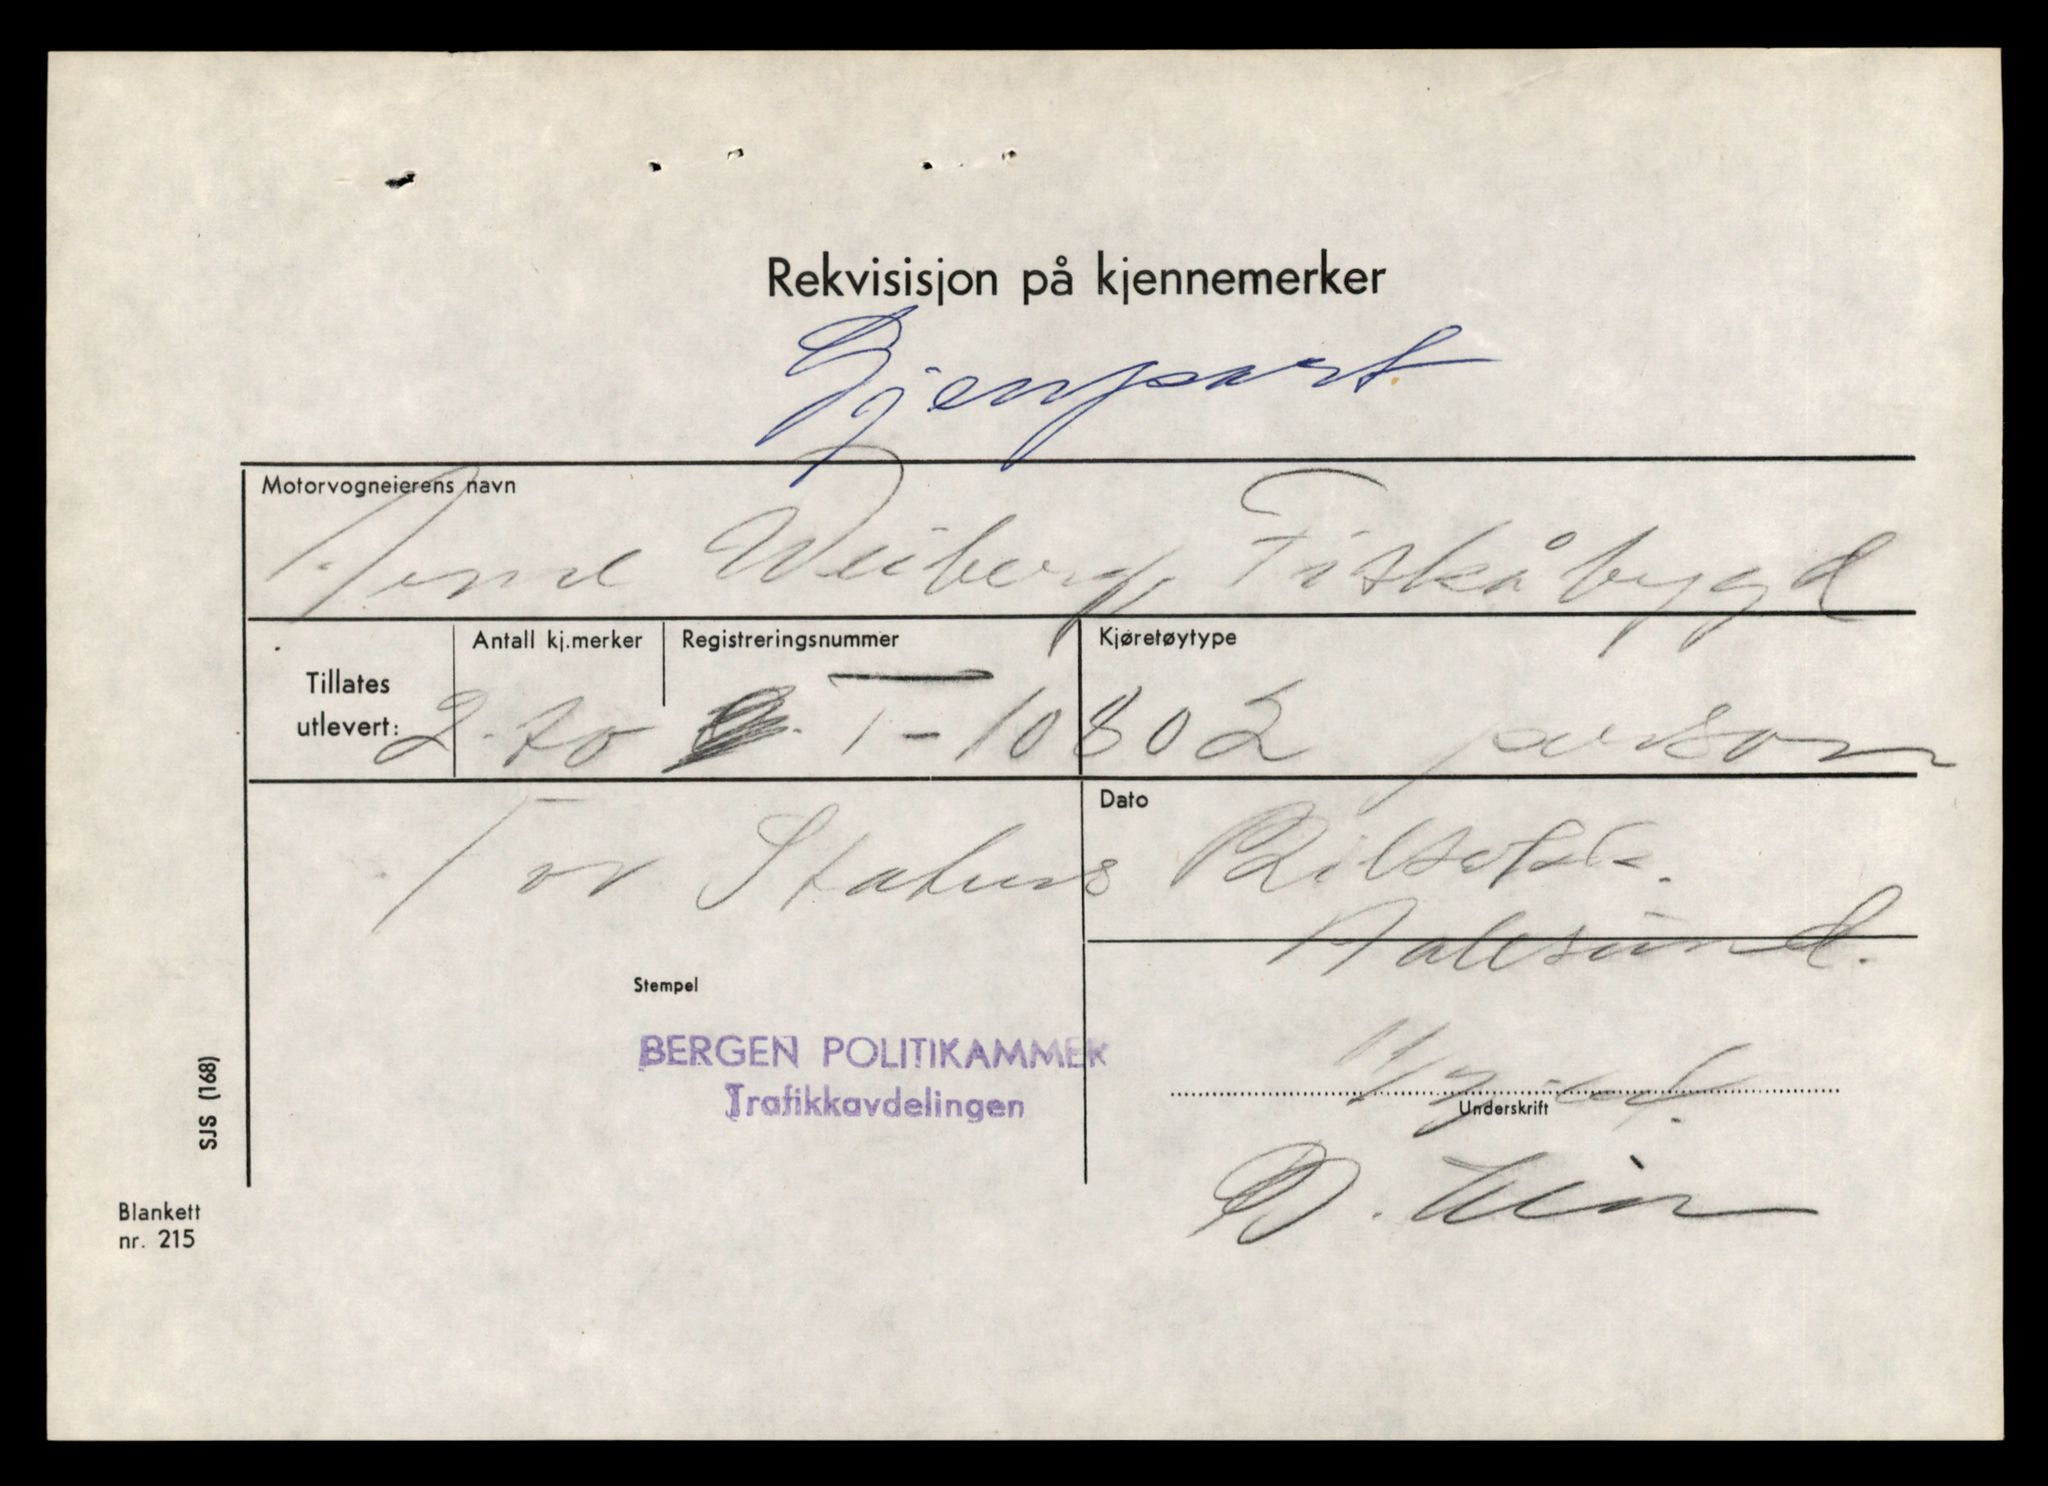 Rekvisisjon på kjennemerker
Gjenpart
Motorvogneierens navn
Arne Weiberg, Fiskåbygd
Tillates utlevert:
Antall kj.merker
Registreringsnummer
Kjøretøytype
2-to T-10802 person
Dato
For Statens Bilsakk.
Aalesund.
Stempel
BERGEN POLITIKAMMER
Trafikkavdelingen
Underskrift
SJS (168)
Blankett
nr. 215